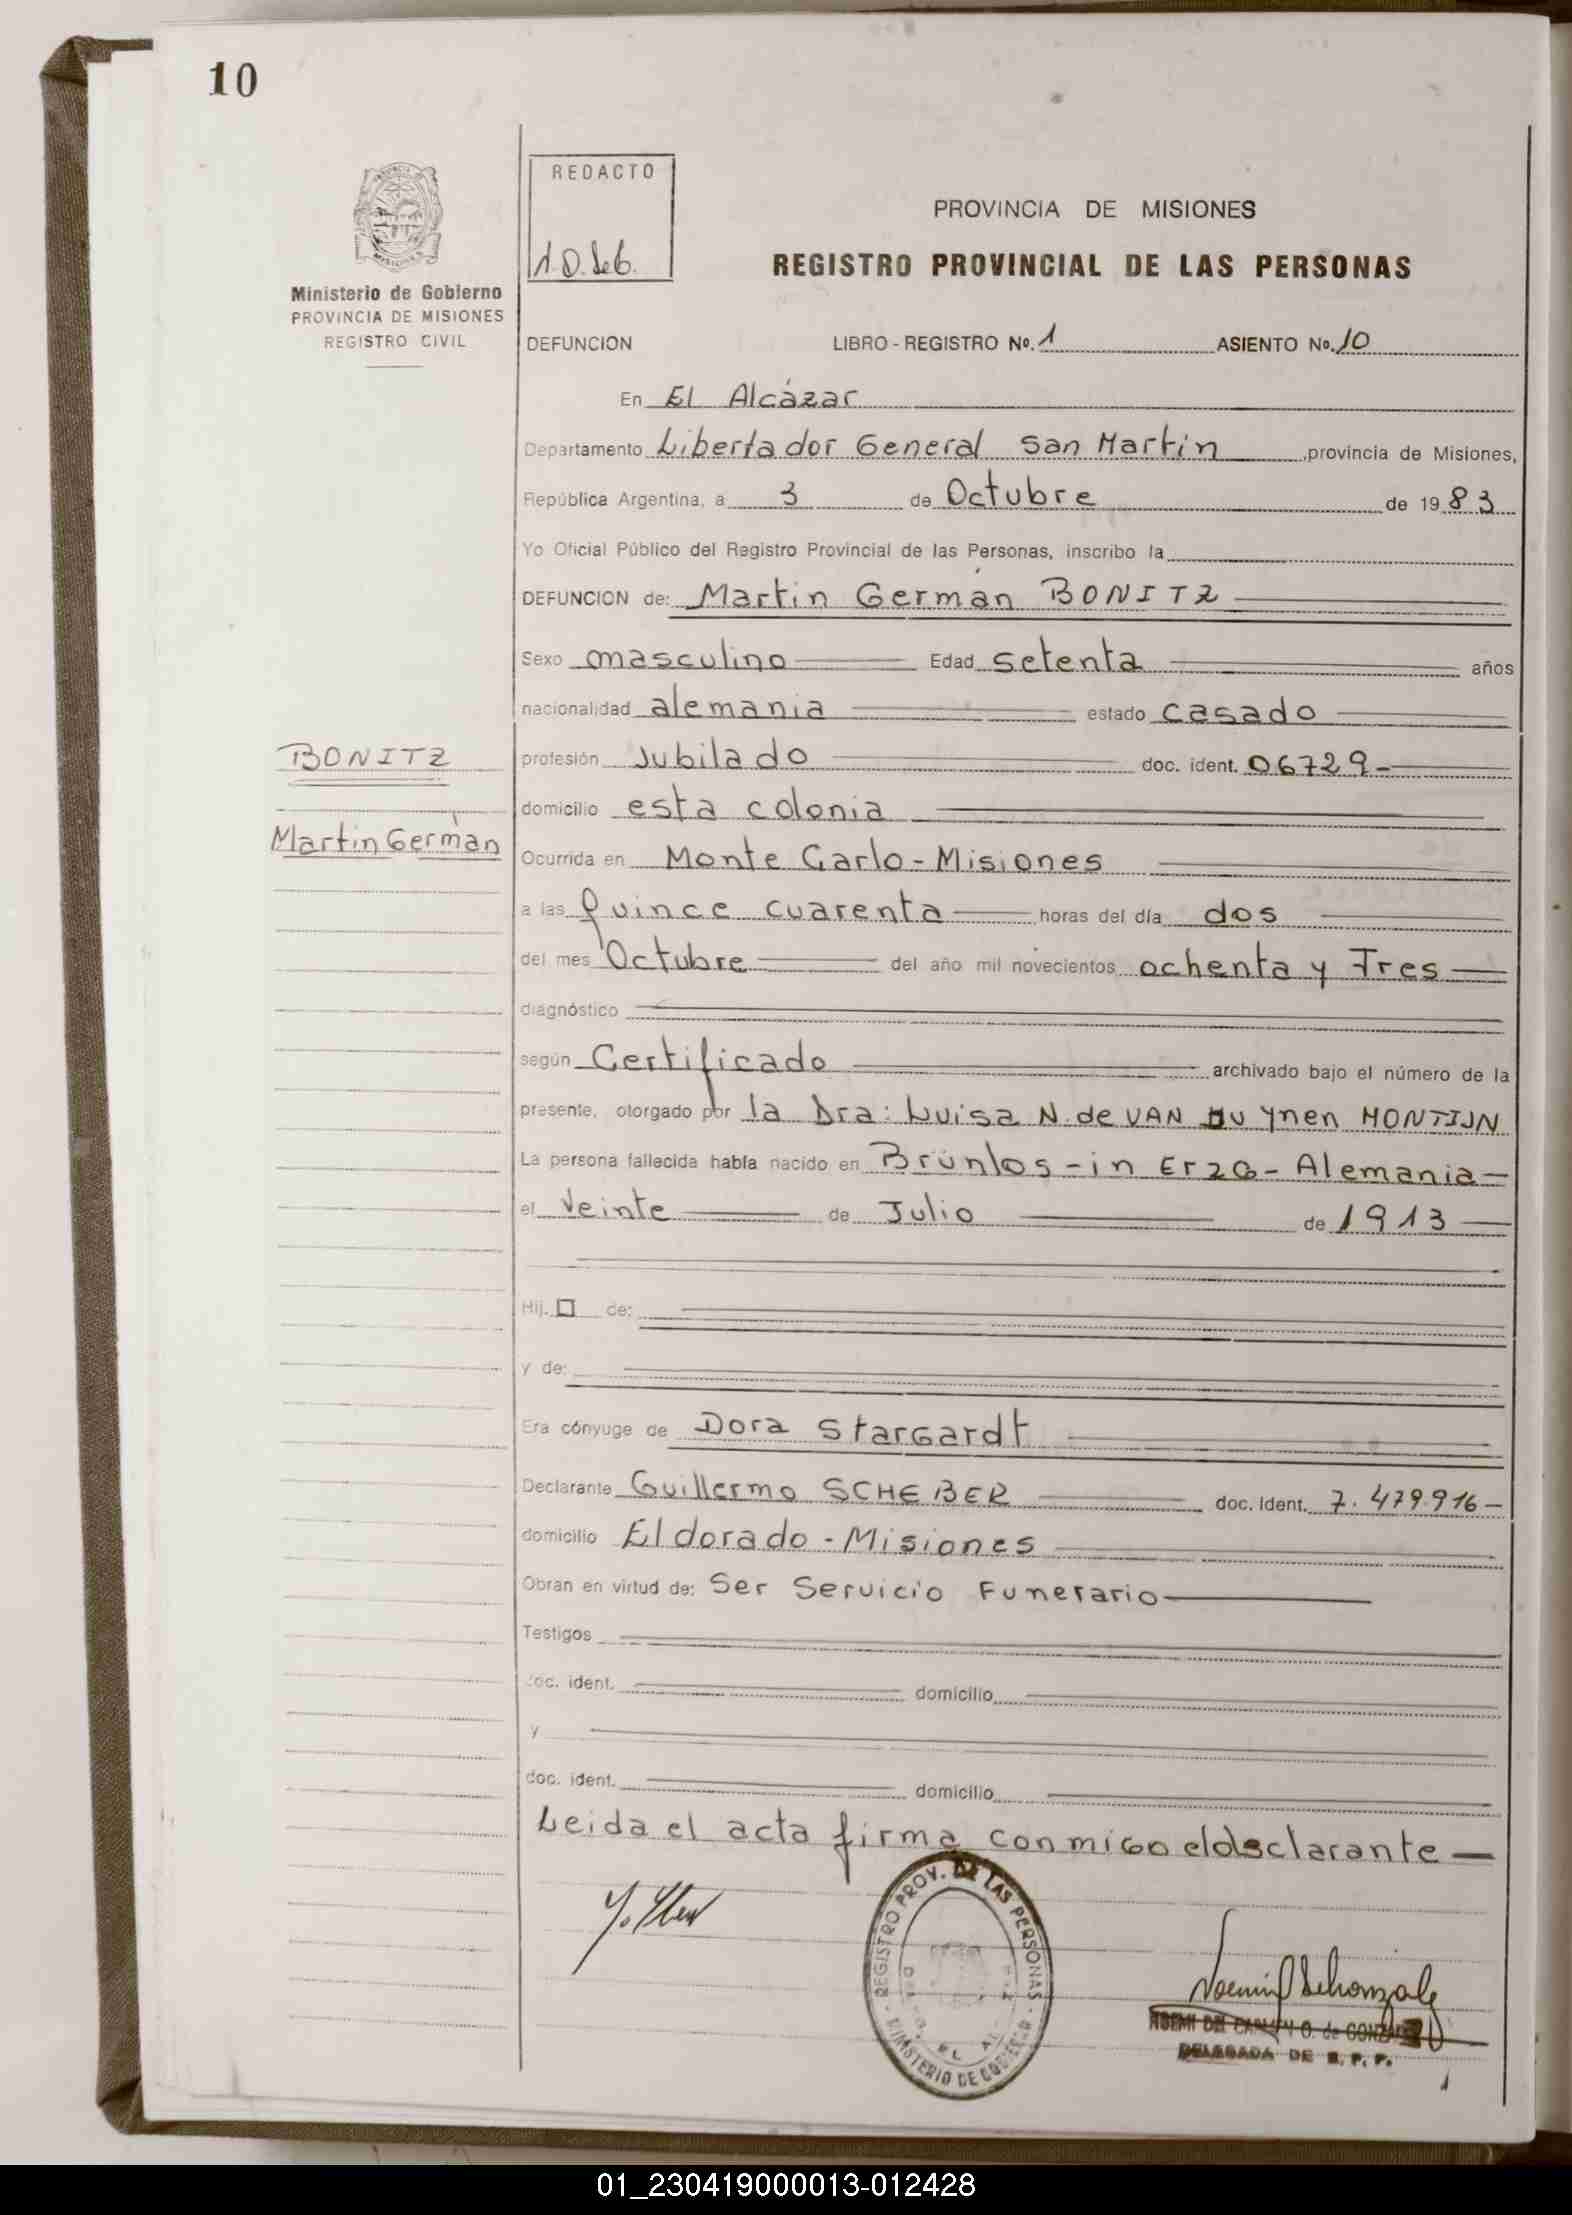 10
REDACTO
Ministerio de Gobierno
PROVINCIA DE MISIONES
REGISTRO CIVIL
PROVINCIA DE MISIONES
REGISTRO PROVINCIAL DE LAS PERSONAS
DEFUNCION LIBRO - REGISTRO No. 1 ASIENTO No. 10
En El Alcázar
Departamento Libertador General San Martin, provincia de Misiones,
República Argentina, a 3 de Octubre de 1983
Yo Oficial Público del Registro Provincial de las Personas, inscribo la
DEFUNCION de: Martin Germán BONITZ
Sexo masculino Edad setenta años
nacionalidad alemania estado casado
BONITZ
profesión Jubilado doc. ident. 06729-
domicilio esta colonia
Martin Germàn
Ocurrida en Monte Carlo-Misiones
a las quince cuarenta horas del día dos
del mes Octubre del año mil novecientos ochenta y Tres
diagnóstico
según Certificado archivado bajo el número de la
presente, otorgado por la Dra: Luisa N. de VAN Du ynen MONTIJN
La persona fallecida había nacido en Brünlos-in Erzg-Alemania-
el veinte de Julio de 1913
Hij. de:
y de:
Era cónyuge de Dora Stargardt
Declarante Guillermo SCHEBER doc. Ident. 7.479.916-
domicilio Eldorado-Misiones
Obran en virtud de: Ser Servicio Funerario
Testigos
doc. ident. domicilio
y
doc. ident. domicilio
Leida el acta firma conmigo el declarante
REGISTRO PROV. DE LAS PERSONAS
MINISTERIO DE GOBIERNO
NOEMI DEL CARMEN O. de GONZALEZ
DELEGADA DE R. P. P.
01_230419000013-012428